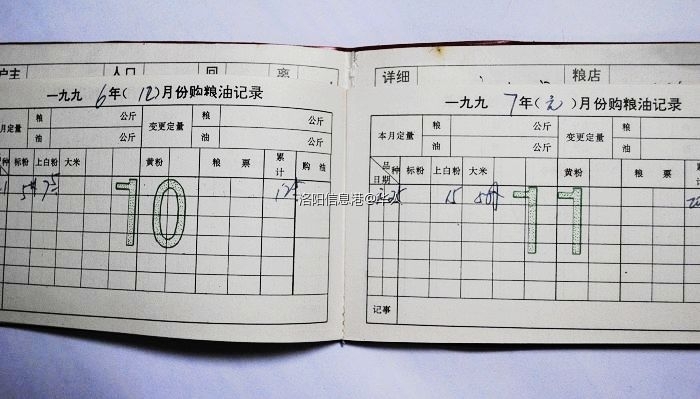 户主 人口 回 离
一九九6年(12)月份购粮油记录
本月定量 粮 公斤 变更定量 粮 公斤
油 公斤 油 公斤
种 标粉 上白粉 大米 黄粉 粮 票 累计 购 油
10
详细 粮店
一九九7年(元)月份购粮油记录
本月定量 粮 公斤 变更定量 粮
油 公斤 油
品种 日期 标粉 上白粉 大米 黄粉 粮 票
15
11
记事
洛阳信息港@